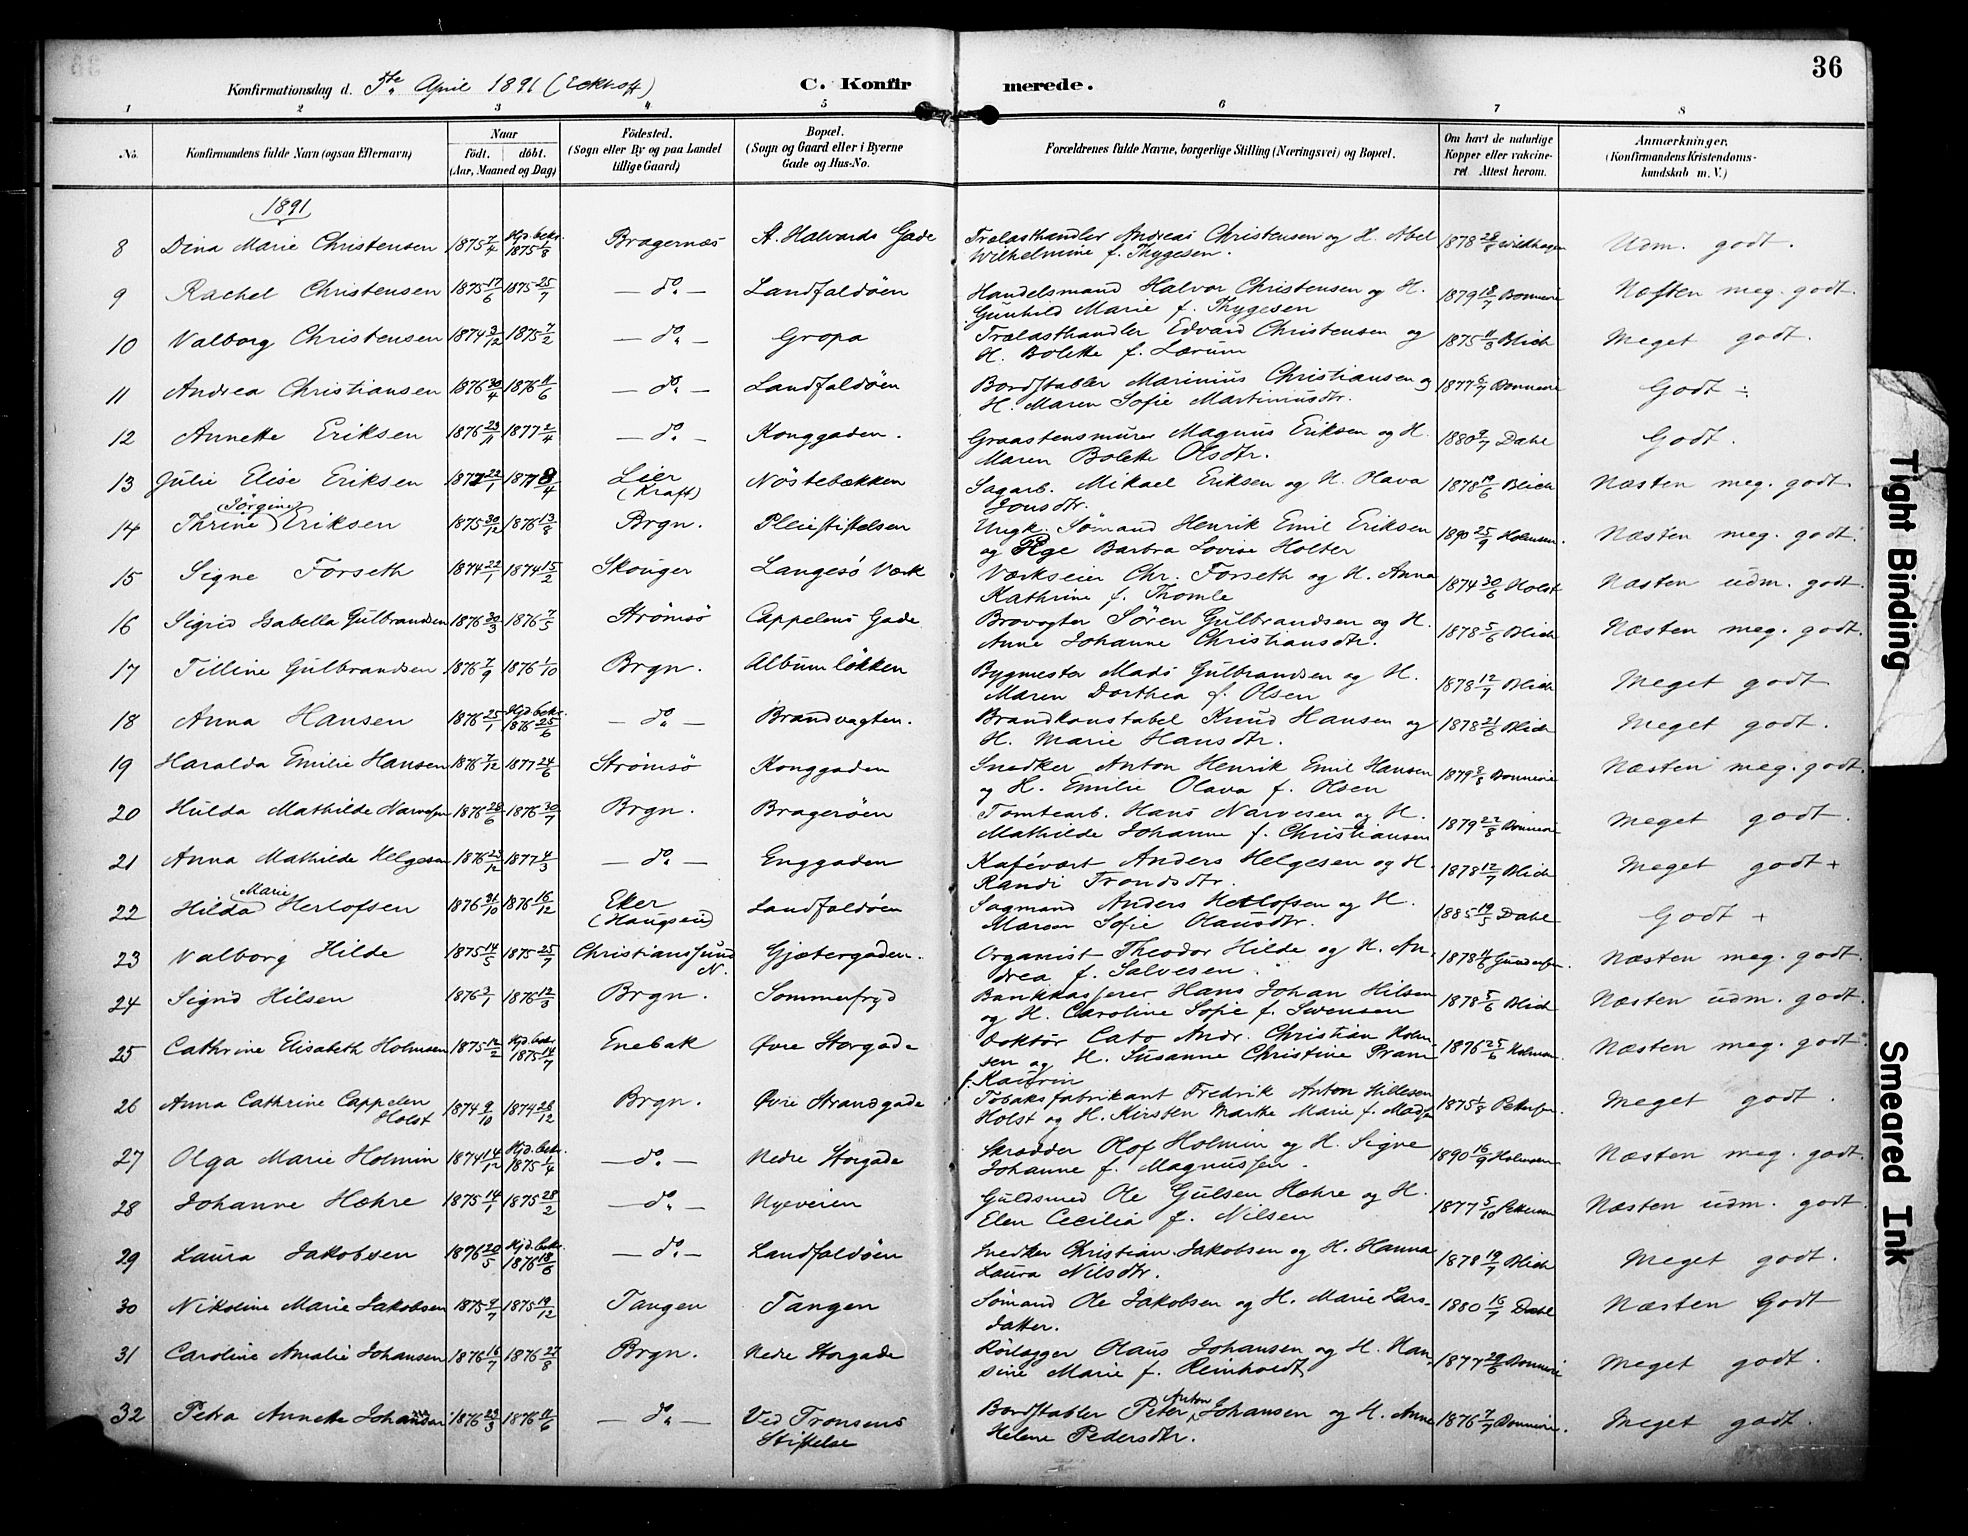 36
Konfirmationsdag d. 5te April 1891 (Eckhoff) C. Konfirmerede.
1 2 3 4 5 6 7 8
No. Konfirmandens fulde Navn (ogsaa Efternavn) Naar Födt. döbt. (Aar, Maaned og Dag) Födested. (Sogn eller By og paa Landet tillige Gaard) Bopæl. (Sogn og Gaard eller i Byerne Gade og Hus-No. Forældrenes fulde Navne, borgerlige Stilling (Næringsvei) og Bopæl. Om havt de naturlige Kopper eller vakcineret. Attest herom. Anmærkninger. (Konfirmandens Kristendomskundskab m. V.)
1891
8 Dina Marie Christensen 1875 7/4 Hjd. bekr. 1875 1/8 Bragernæs St. Halvards Gade Trælasthandler Andreas Christensen og H. Abel Wilhelmine f. Thygesen. 1878 28/6 Wildhagen Udm. godt.
9 Rachel Christensen 1875 17/6 1875 25/7 — do. — Landfaldöen Handelsmand Halvor Christensen og H. Gunhild Marie f. Thygesen 1879 18/7 Bonnevie Næsten meg. godt.
10 Valborg Christensen 1874 3/12 1875 7/2 — do. — Gropa Trælasthandler Edvard Christensen og H. Bolette f. Lærum 1875 11/3 Blich Meget godt.
11 Andrea Christiansen 1876 30/4 1876 11/6 — do. — Landfaldöen Bordstabler Marinius Christiansen og H. Maren Sofie Martinusdtr. 1877 6/7 Bonnevie Godt ÷
12 Annette Eriksen 1876 23/11 1877 2/4 — do. — Konggaden. Graastensmurer Magnus Eriksen og H. Maren Bolette Olsdtr. 1880 9/7 Dahl Godt.
13 Julie Elise Eriksen 1877 22/1 1877 8/4 Lier (Kraft) Nöstebækken Sagarb. Mikael Eriksen og H. Olava Jonsdtr. 1878 19/6 Blich Næsten meg. godt.
14 Thrine Jörgine Eriksen 1875 30/12 1876 13/8 Brgn. Pleiestiftelsen Ungk. Sömand Henrik Emil Eriksen og Pige Barbra Lovise Holter 1890 25/9 Holmsen. Næsten meg. godt.
15 Signe Forseth 1874 22/1 1874 15/2 Skouger Langesö Værk Værkseier Chr. Forseth og H. Anna Kathrine f. Thomle 1874 30/6 Holst Næsten udm. godt.
16 Sigrid Isabella Gulbrandsen 1876 20/3 1876 7/5 Strömsö Cappelens Gade Brovogter Sören Gulbrandsen og H. Anne Johanne Christiansdtr. 1878 5/6 Blich Næsten meg. godt.
17 Tilline Gulbrandsen 1876 7/9 1876 1/10 Brgn. Albumlökken Bygmester Mads Gulbrandsen og H. Maren Dorthea f. Olsen 1878 12/7 Blich Meget godt
18 Anna Hansen 1876 25/1 Hjd. bekr. 1876 25/6 — do. — Brandvagten. Brandkonstabel Knud Hansen og H. Marie Hansdtr. 1878 21/6 Blich Meget godt.
19 Haralda Emilie Hansen 1876 7/12 1877 24/6 Strömsö Konggaden Snedker Anton Henrik Emil Hansen og H. Emilie Olava f. Olsen 1879 2/8 Bonnevie Næsten meg. godt.
20 Hulda Mathilde Narvesen 1876 28/6 1876 30/7 Brgn. Bragerøen Tomtearb. Hans Narvesen og H. Mathilde Johanne f. Christiansen 1879 22/8 Bonnevie Meget godt.
21 Anna Mathilde Helgesen 1876 23/12 1877 4/3 — do. — Enggaden Kafévært Anders Helgesen og H. Randi Trondsdtr. 1878 12/7 Blich Meget godt +
22 Hilda Marie Herlofsen 1876 31/10 1876 16/12 Eker (Haugsund) Landfaldöen Sagmand Anders Herlofsen og H. Maren Sofie Olausdtr. 1885 19/5 Dahl Godt +
23 Valborg Hilde 1875 14/5 1875 25/7 Christianssund N. Gjætergaden. Organist Theodor Hilde og H. Andrea f. Salvesen. 1878 11/6 Gundersen. Næsten meg. godt.
24 Sigrid Hilsen 1876 3/1 1876 12/3 Brgn. Sommerfryd Bankkasserer Hans Johan Hilsen og H. Caroline Sofie f. Swensen 1878 5/6 Blich Næsten udm. godt.
25 Cathrine Elisabeth Holmsen 1875 12/2 Hjd. bekr. 1875 14/7 Enebak Øvre Storgade Doktor Cato Andr. Christian Holmsen og H. Susanne Christine Pram f. Kaurin 1876 25/6 Holmsen Næsten meg. godt.
26 Anna Cathrine Cappelen Holst 1874 9/10 1874 28/12 Brgn. Øvre Strandgade Tobaksfabrikant Fredrik Anton Hillesen Holst og H. Kirsten Marthe Marie f. Madsen 1875 1/8 Petersen Meget godt.
27 Olga Marie Holmin 1874 14/12 Hjd. bekr. 1875 1/4 — do. — Nedre Storgade Skrædder Olof Holmin og H. Signe Johanne f. Magnussen. 1890 16/9 Holmsen Næsten meg. godt.
28 Johanne Hæhre 1875 14/1 1875 28/2 — do. — Nyeveien Guldsmed Ole Gulsen Hæhre og H. Elen Cecilia f. Nilsen 1877 5/10 Petersen Næsten udm. godt
29 Laura Jakobsen 1876 20/5 Hjd. bekr. 1876 18/6 — do. — Landfaldöen Snedker Christian Jakobsen og H. Hanna Laura Nilsdtr. 1878 19/7 Blich Meget godt.
30 Nikoline Marie Jakobsen 1875 9/7 1875 19/12 Tangen Tangen Sømand Ole Jakobsen og H. Marie Larsdatter. 1880 16/7 Dahl Næsten Godt
31 Caroline Amalie Johansen 1876 16/7 1876 27/8 Brgn. Nedre Storgade Rörlægger Olaus Johansen og H. Hansine Marie f. Reinholdt 1877 29/6 Bonnevie Meget godt.
32 Petra Annette Johansen 1876 23/3 1876 11/6 — do. — Ved Tronsens Stiftelse Bordstabler Peter Anton Johansen og H. Anne Helene Pedersdtr. 1876 7/7 Bonnevie. Meget godt.
Tight Binding
Smeared Ink